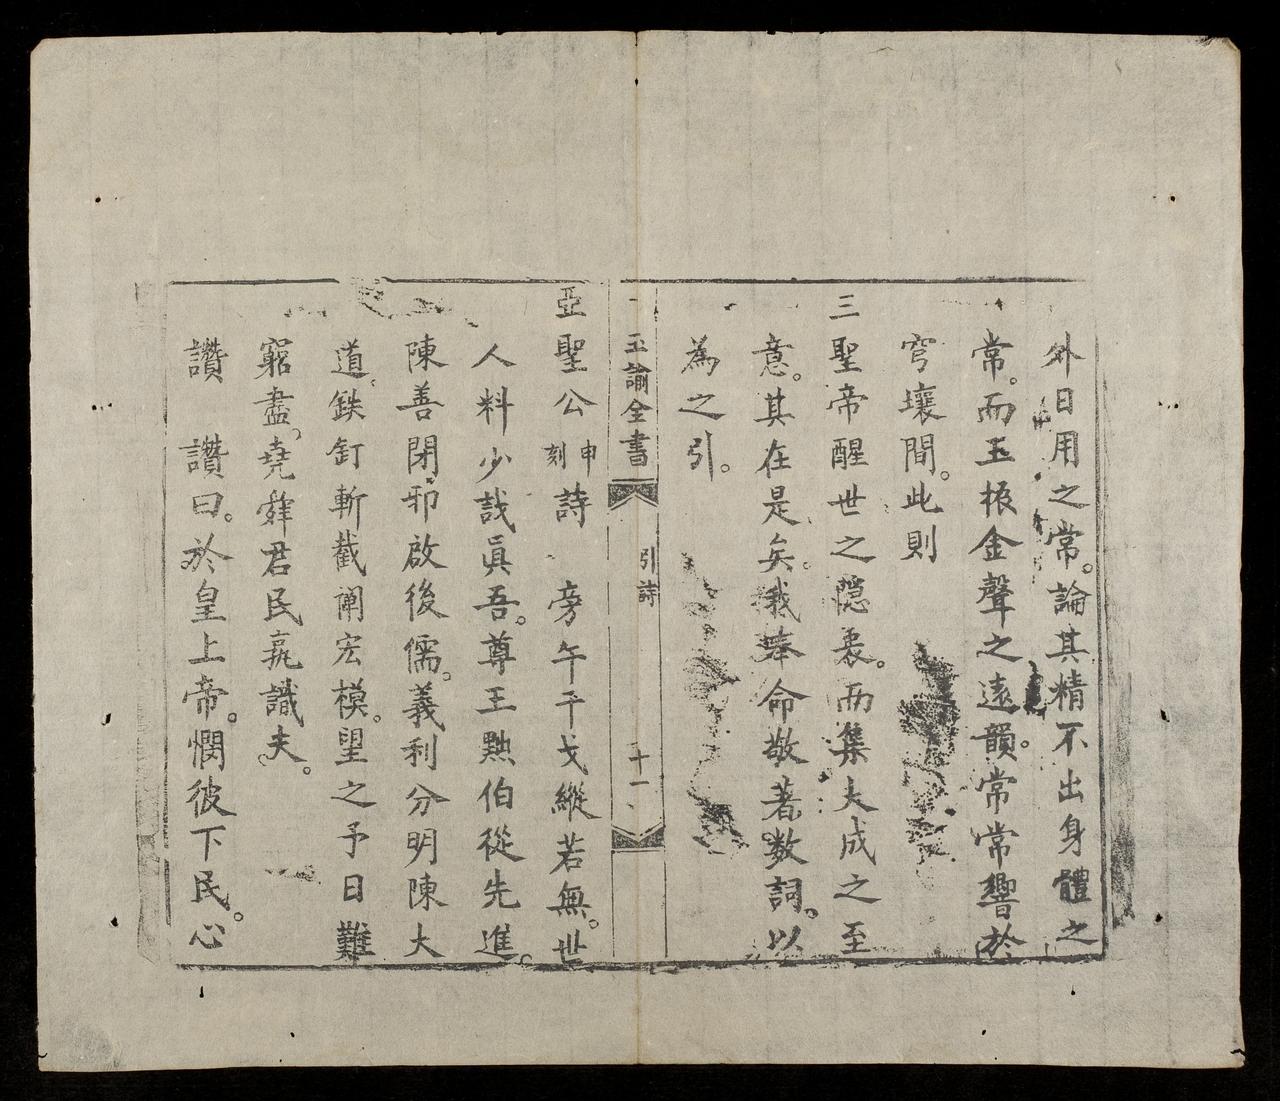 外日用之常。論其精不出身體之
常。而玉振金聲之遠韻。常常響於
穹壤間。此則
三聖帝醒世之隱衷。而集大成之至
意。其在是矣。我奉命敬著数詞。以
為之引。
玉諭全書
引詩
十一
亞聖公申刻詩 旁午干戈縱若無。世
人料少哉眞吾。尊王黜伯從先進。
陳善閉邪啟後儒。義利分明陳大
道。鉄釘斬截闡宏模。望之予日難
窮盡。堯舜君民孰識夫。
讚 讚曰。於皇上帝。憫彼下民。心